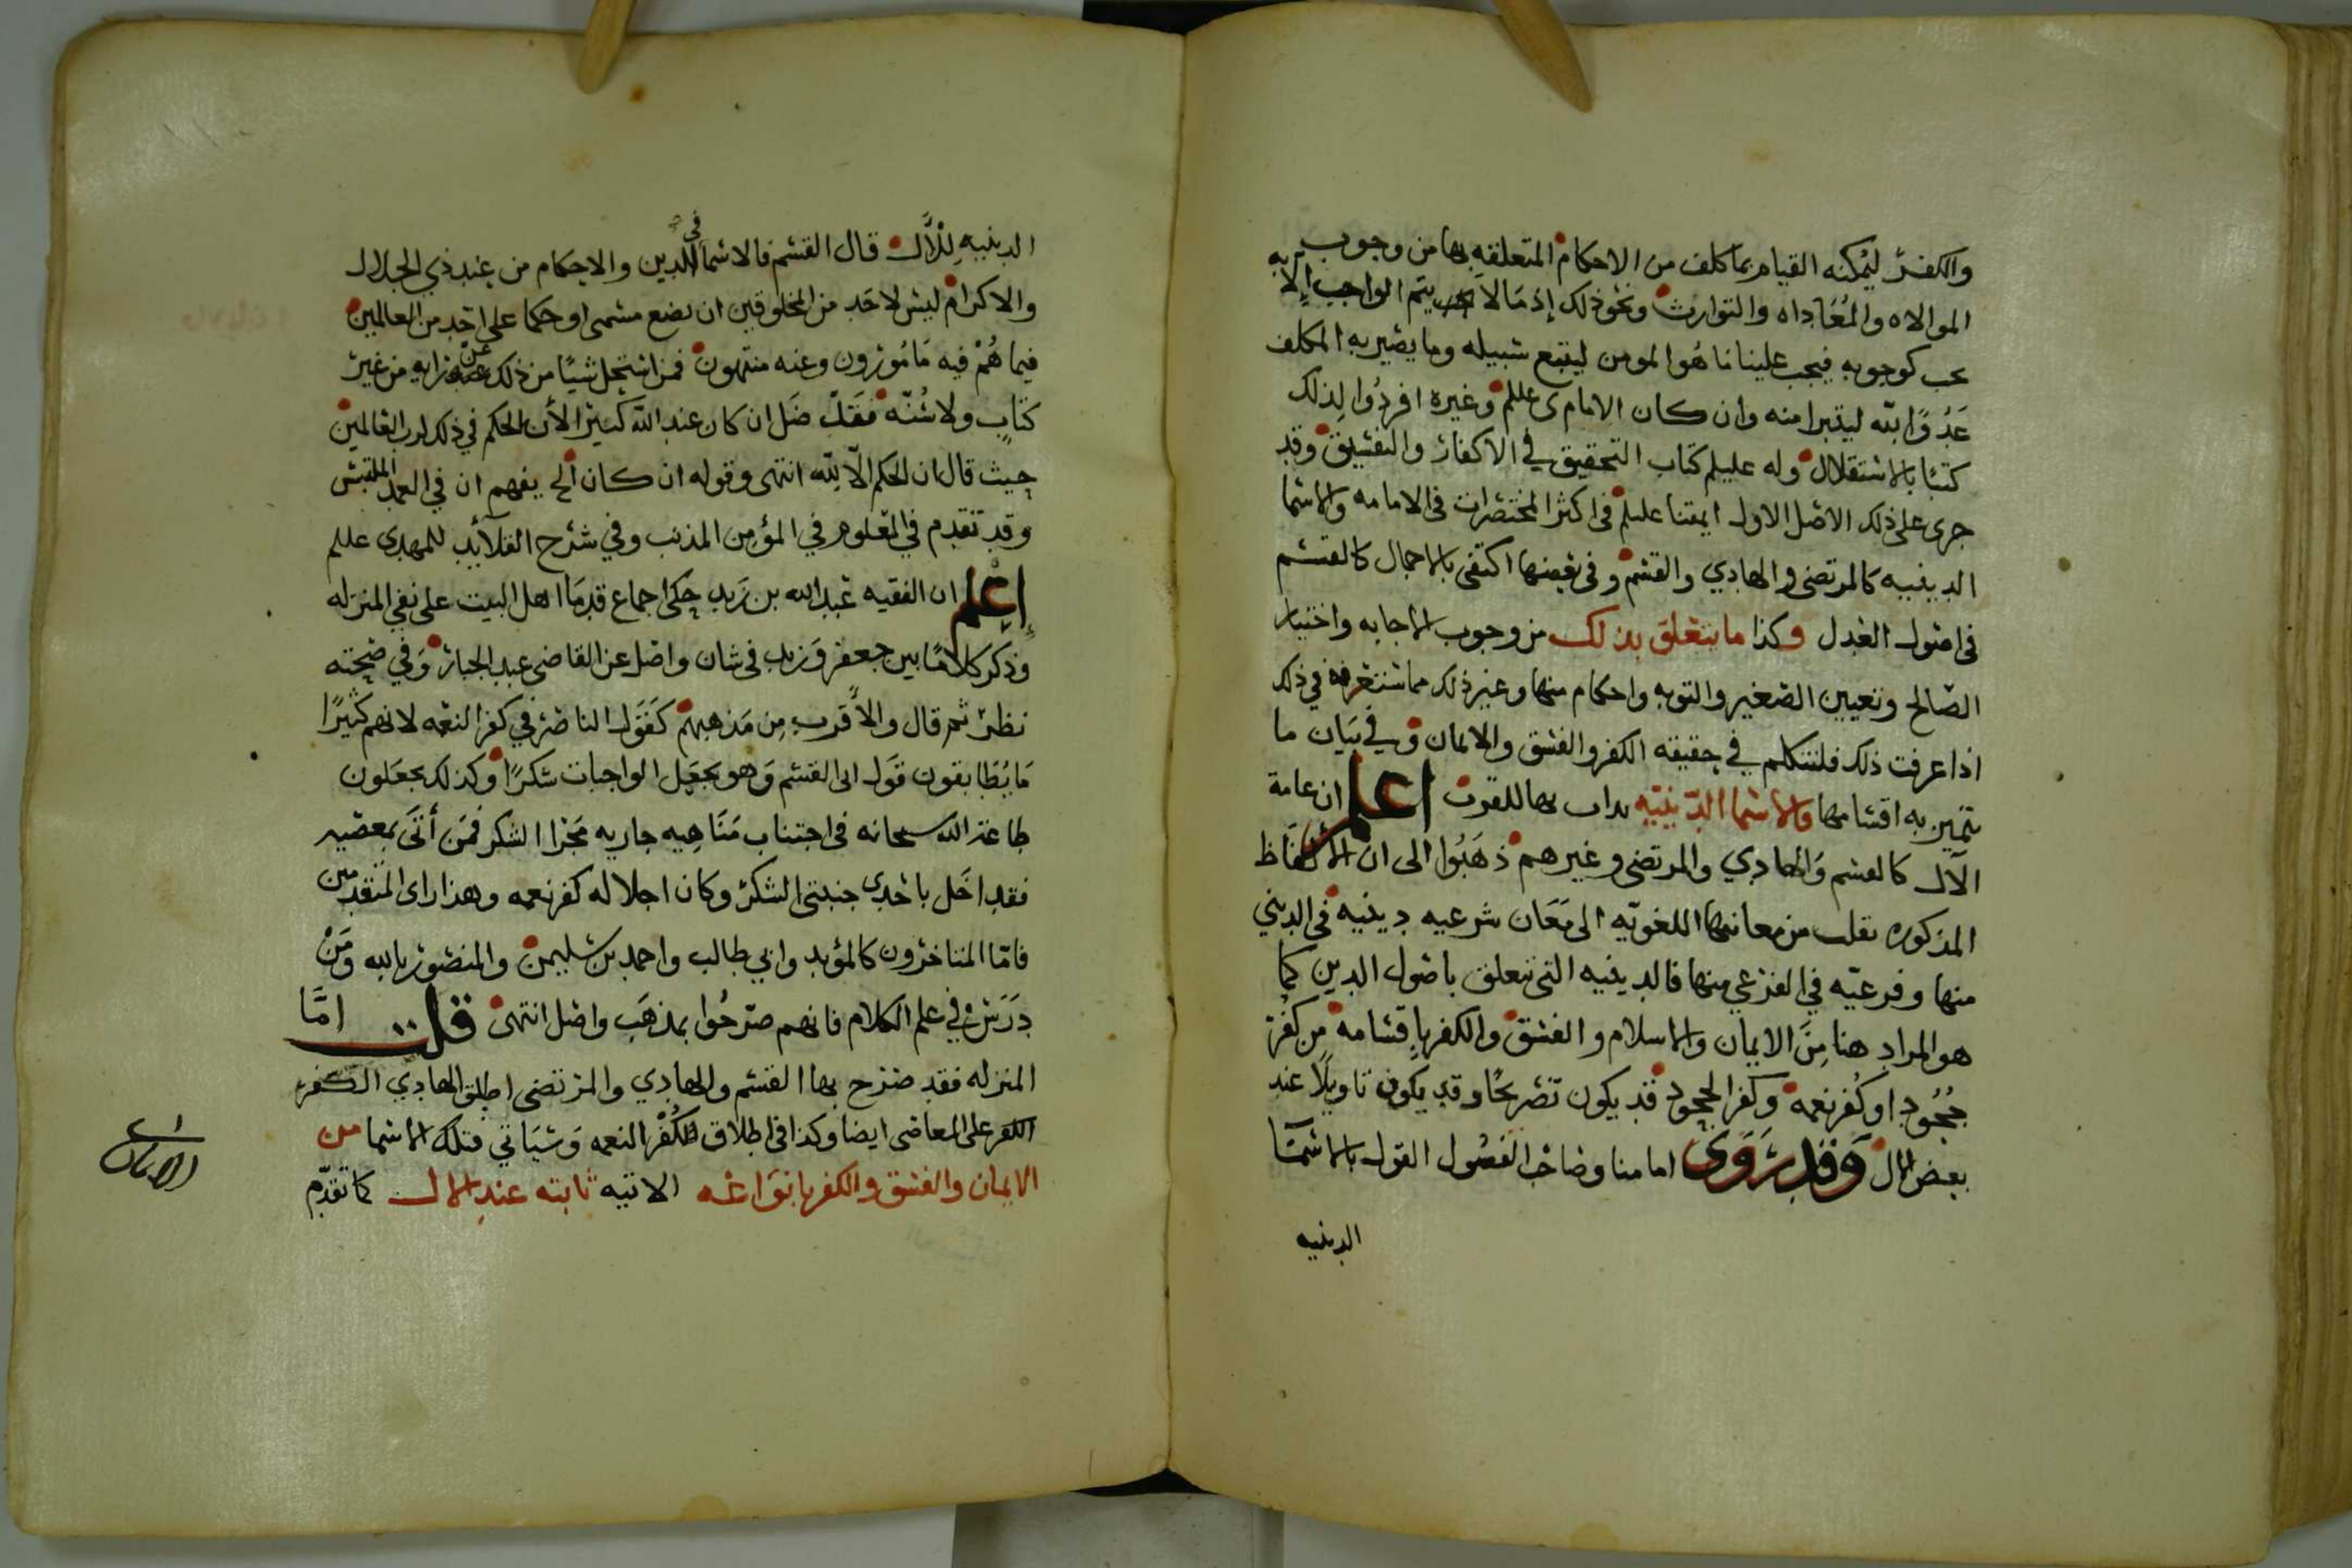 والكفر ليمكنه القيام بما كلف من الاحكام المتعلقه بها من وجوب
الموالاه والمُعَاداه والتوارث ونحو ذلك إذ مَا لا يتم الواجب إلا به
يجب كوجوبه فيجب علينا هُو المومن ليتبع سبيله وما يصير به المكلف
عَدُوًا لله ليتبرا منه وان كان الامام ى علىلم وغيره افردُوا لِذلك
كتبًا بالاستقلال وله عليلم كتاب التحقيق في الاكفار والتفسيق وقد
جرى على ذلك الاصل الاول ايمتنا عليلم في اكثر المختصرات في الامامه والاسما
الدينيه كالمرتضى والهادي والقسم وفي بعضها اكتفى بالاجمال كالقسم
في اصول العدل وكذا ما يتعلق بذلك من وجوب الاجابه واختيار
الصالح وتعيين الصغير والتوبه واحكام منها وغير ذلك مما ستعرفه في ذلك
اذا عرفت ذلك فلنتكلم في حقيقه الكفر والفسق والايمان وفي بَيَان ما
تتميز به اقسامها والاسما الدّينيّه بها للفرق اعلم ان عامة
الآل كالقسم وَالهادي والمرتضى وغيرهم ذهَبُوا الى ان الالفاظ
المذكوره نقلت من معانيها اللغويّه الى مَعَان شرعيه دينيه في الديني
منها وفرعيّه في الفرعي منها فالدينيه التي تتعلق باصول الدين كما
هو المراد هنا مِنَ الايمان والاسلام والفسق والكفر باِقسامه من كفر
جُحُود او كُفر نعمه وكفر الجحود قد يكون تصريحًا وقد يكون تاويلًا عند
بعض الال وَقد رَوَى امامنا وصاحب الفصُول القول بالاسمآ
الدينيه
الدينيه لِلْآل قال القسم فالاسما في الدين والاحكام من عند ذي الجلال
والاكرام ليس لاحَد من المخلوقين ان يضع مسمى او حكما على احد من العالمين
فيما هُمْ فيه مَامُورون وعنه منتهون فمن استحل شيًا من ذلك عن رايه من غير
كتابٍ ولا سُنّه فقَدْ ضَل ان كان عند الله كبيرًا لأن الحكم في ذلك لرب العالمين
حيث قال ان الحكم الّا لِلّه انتهى وقوله ان كان الخ يفهم ان في العمد الملتبس
وقد تقدم في المعلوم في المؤمن المذنب وفي شرح القلآئد للمهدى علىلم
إعْلم ان الفقيه عَبدالله بن زَيد حِكى اجماع قدمَا اهل البيت على نفي المنزله
وذكر كلامًا بين جعفر وَزيد في شان واصل عن القاضى عبد الجبار وَفي صحته
نظر ثم قال والأَقرب مِن مَذهبهم كَقَول الناصر في كفر النعمه لانهم كثيرًا
مَا يُطابقون قَول ابى القسم وَهو يجعَل الواجبات شكرًا وكذلك يجعَلون
طاعة الله سبحانه في اجتناب مَنَاهِيه جاريه مَجْرَا الشكر فمَن أتَى بمعصيه
فقد اخَل باحدى جنبتي الشكر وكان اخلاله كفر نعمه وهذا راى المتقدمين
فامّا المتاخرون كالمؤيد وابي طالب واحمد بن سليمن والمنصور بالله ومَنْ
دَرَس في علم الكلام فانهم صرّحُوا بمذهَب واصل انتهى قلت امَّا
المنزله فقد صَرح بها القسم والهادي والمرتضى اطلق الهادي الكفر
الكفر على المعاصى ايضا وكذا في اطلاق الكُفر النعمه وَسَيَاتي فتلك الاسما من
الايمان والفسق والكفر بانوَاعه الاتيه ثابته عند الال كما تقدّم